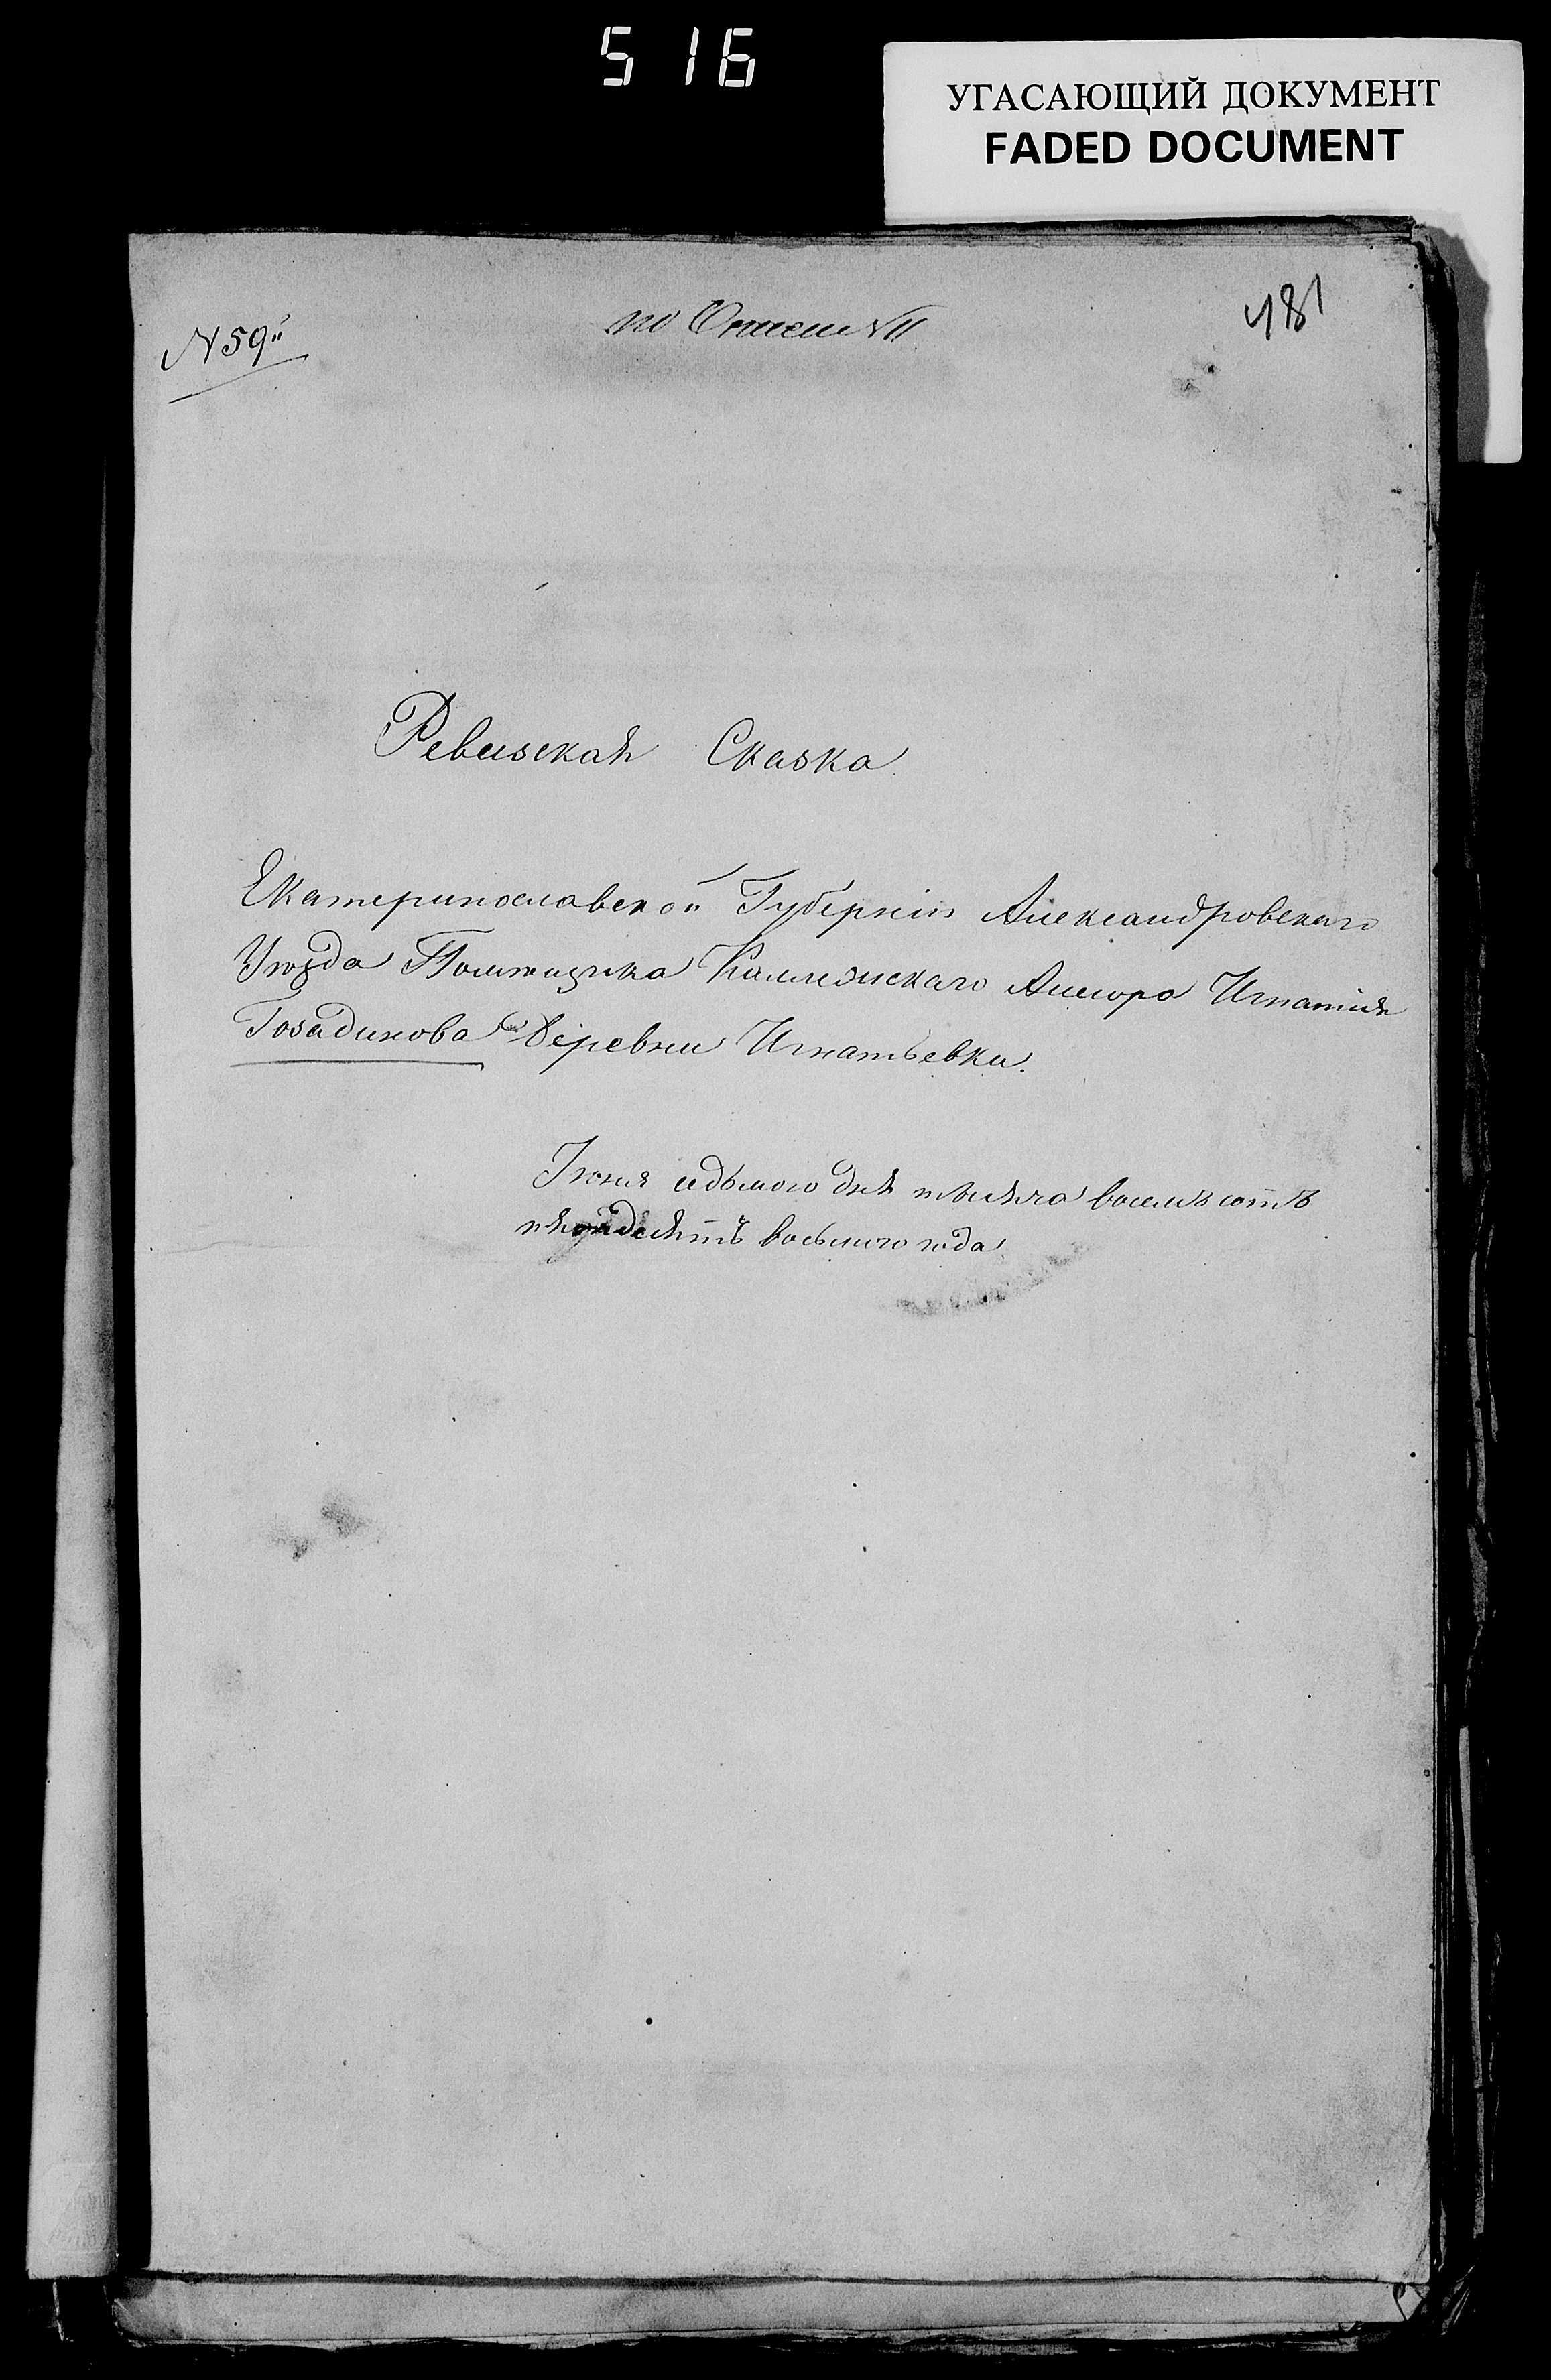 516
УГАСАЮЩИЙ ДОКУМЕНТ
FADED DOCUMENT
N 59
по Описи
481
Ревизская Сказка
Екатеринославской Губерніи Александровскаго
Уѣзда Помѣщика Коллежскаго Ассесора Игнатія
Гозадинова Деревни Игнатьевки.
Іюня седьмого дня тысяча восемь сотъ
пятьдесятъ восьмого года